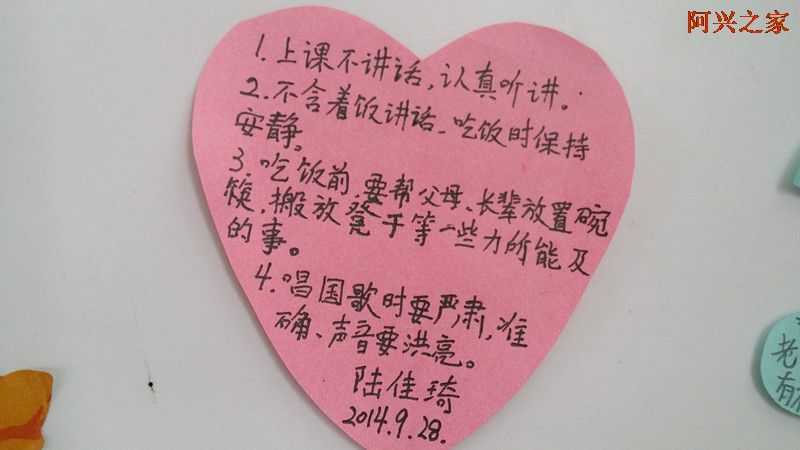 阿兴之家
1.上课不讲话,认真听讲。
2.不含着饭讲话、吃饭时保持
安静。
3.吃饭前,要帮父母、长辈放置碗
筷,搬放凳子等一些力所能及
的事。
4.唱国歌时要严肃,准
确、声音要洪亮。
陆佳琦
2014.9.28.
老
有